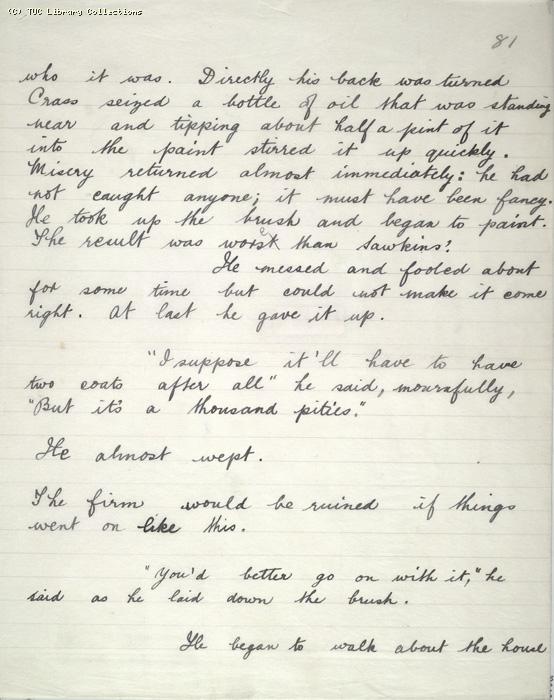 (C) TUC Library Collections
81
who it was. Directly his back was turned
Crass seized a bottle of oil that was standing
near and tipping about half a pint of it
into the paint stirred it up quickly.
Misery returned almost immediately: he had
not caught anyone; it must have been fancy.
He took up the brush and began to paint.
The result was worse than Sawkins!
He messed and fooled about
for some time but could not make it come
right. At last he gave it up.
"I suppose it'll have to have
two coats after all" he said, mournfully,
"But it's a thousand pities."
He almost wept.
The firm would be ruined if things
went on like this.
"You'd better go on with it," he
said as he laid down the brush.
He began to walk about the house